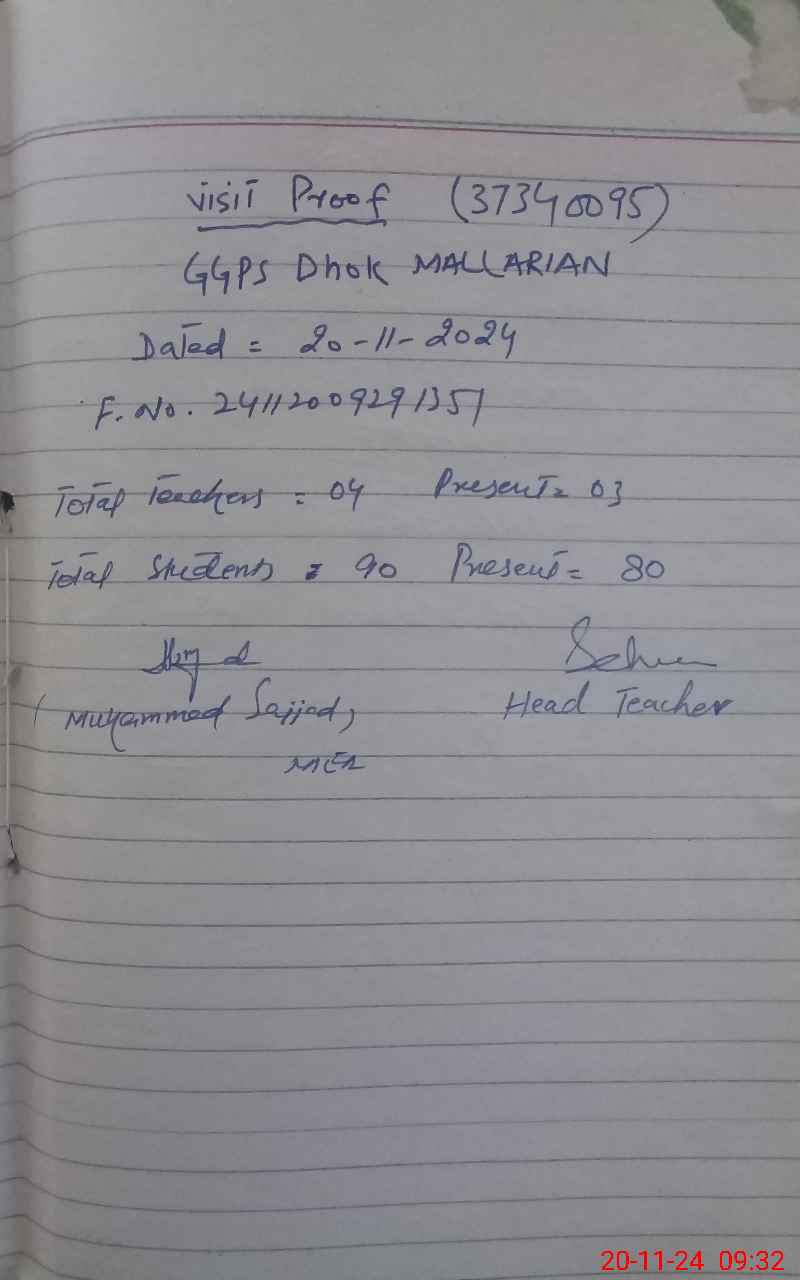 Visit Proof (37340095)
GGPS Dhok MALLARIAN
Dated = 20-11-2024
F. No. 24112009291351
Total Teachers = 04 Present = 03
Total Students = 90 Present = 80
Head Teacher
(Muhammad Sajjad)
MEA
20-11-24 09:32